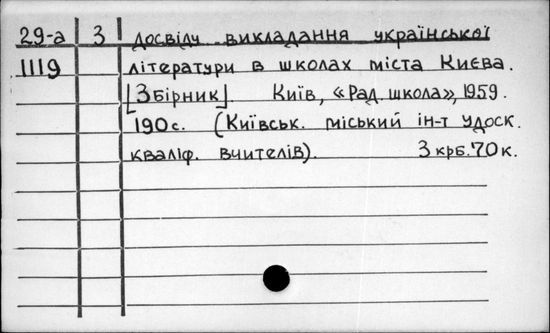 29-а 3 Досвіду викладання української
1119 літератури в школах міста Києва.
[Збірник] Київ, «Рад. школа», 1959.
190 с. (Київськ. міський ін-т удоск.
кваліф. вчителів). 3 крб. 70 к.